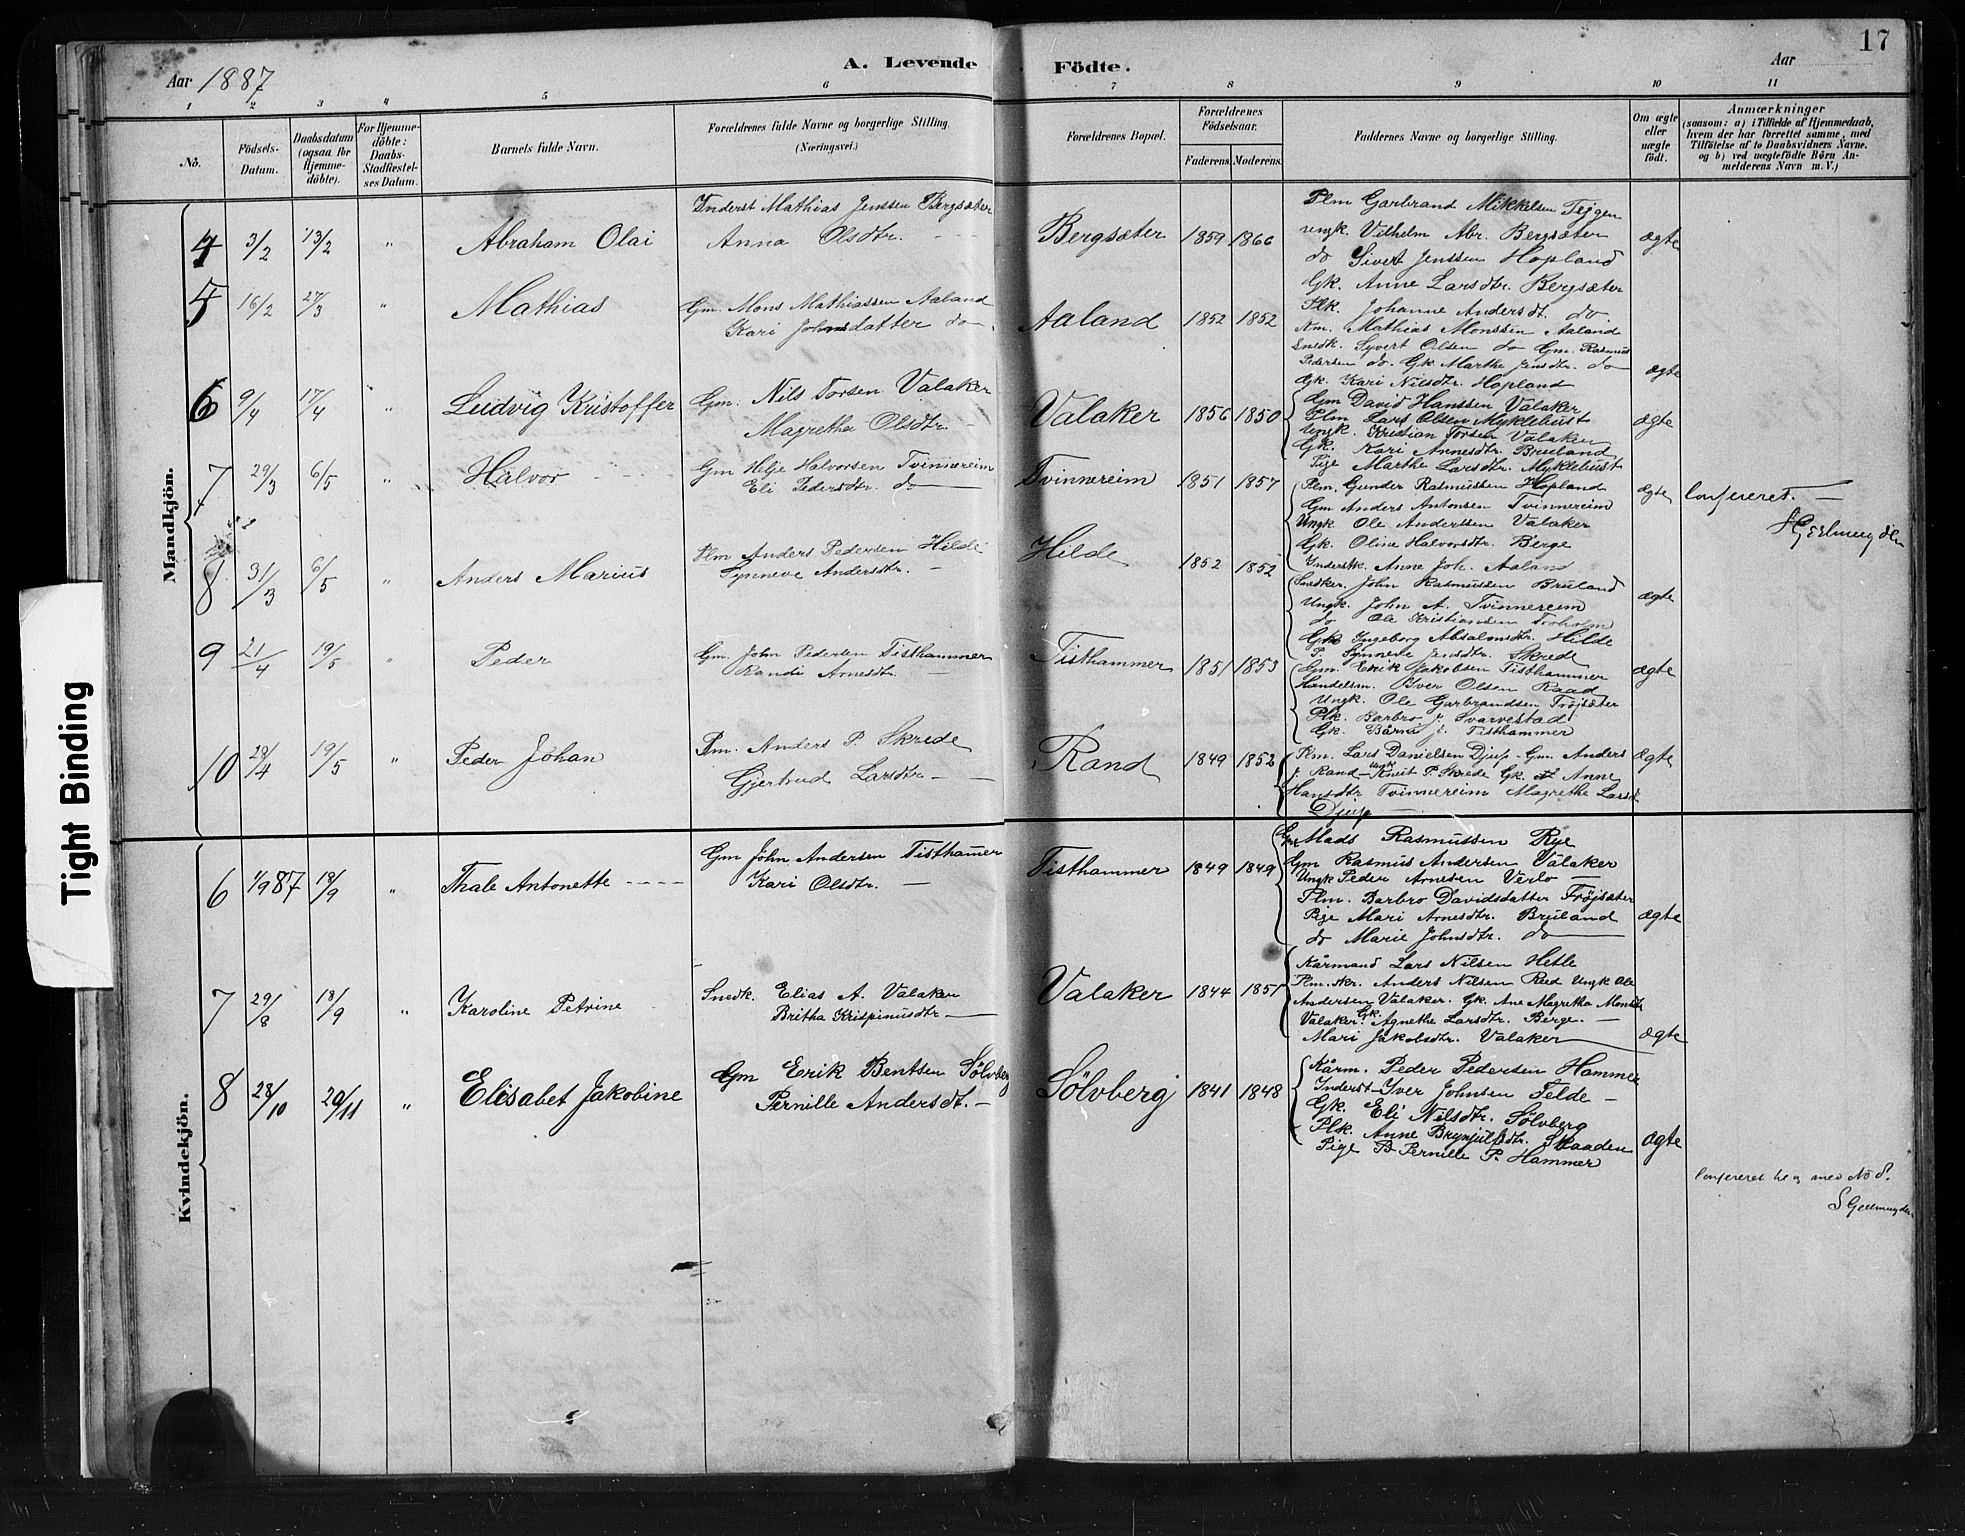 Aar 1887
A. Levende Födte.
Aar
17
1 2 3 4 5 6 7 8 9 10 11
No.
Födsels-Datum.
Daabsdatum (ogsaa for Hjemmedöbte).
For Hjemmedöbte: Daabs-Stadfæstelses Datum.
Barnets fulde Navn.
Forældrenes fulde Navne og borgerlige Stilling. (Næringsvei.)
Forældrenes Bopæl.
Forældrenes Födselsaar.
Faderens. Moderens.
Faddernes Navne og borgerlige Stilling.
Om ægte eller uægte födt.
Anmærkninger
(saasom: a) i Tilfælde af Hjemmedaab, hvem der har forrettet samme, med Tilföielse af to Daabsvidners Navne, og b) ved uægtefödte Börn Anmelderens Navn m. V.)
Mandkjön.
4 3/2 13/2 " Abraham Olai
Inderst Mathias Jenssen Bergsæter
Anna Olsdtr.
Bergsæter 1859 1866
Plm Garbrand Mikkelsen Tejgen
Ungk. Vilhelm Abr. Bergsæter
do Sivert Jenssen Hopland
Gk. Anne Larsdtr. Bergsæter
Plk. Johanne Andersdt. do
ægte
5 16/2 27/3 " Mathias
Gm. Mons Mathiassen Aaland
Kari Johnsdatter do
Aaland 1852 1852
Km. Mathias Monssen Aaland
Snedk. Syvert Olsen do Gm. Rasmus
Pedersen do. Gk. Marthe Jensdtr. do
Gk. Kari Nilsdtr. Hopland
ægte
6 9/4 17/4 " Ludvig Kristoffer
Gm. Nils Torsen Valaker
Magretha Olsdtr.
Valaker 1856 1850
Gm David Hanssen Valaker
Plm Lars Olsen Myklebust
Ungk. Kristian Torsen Valaker
Gk. Kari Arnesdtr. Bruland
Pige Marthe Larsdtr. Myklebust
ægte
7 29/3 6/5 " Halvor
Gm Helje Halvorsen Tvinnereim
Eli Pedersdtr. do
Tvinnereim 1851 1857
Plm. Gunder Rasmussen Hopland
Gm Anders Antonsen Tvinnereim
Ungk Ole Andersen Valaker
Gk. Olina Halvorsdtr. Berge
Inderstk. Anne Joh. Aaland
ægte Confereret.
8 31/3 6/5 " Anders Marius
Plm Anders Pedersen Hilde
Synneve Andersdtr.
Hilde 1852 1852
Snedker. John Rasmussen Bruland
Ungk. John A. Tvinnereim
do Ole Kristiansen
Gk Ingeborg Absalonsdtr. Hilde
P. Synneve Jensdtr. Skrede
ægte
9 21/4 19/5 " Peder
Gm. John Pedersen Tisthammer
Randi Arnesdtr.
Tisthammer 1851 1853
Gm. Erik Jakobsen Tisthammer
Handelsm. Iver Olsen Raad
Ungk. Ole Garbrandsen Frøjsæter
Plk. Barbro J. Svarvestad
Gk. Bårna J. Tisthammer
ægte
10 28/4 19/5 " Peder Johan
Plm. Anders P. Skrede
Gjertrud Larsdtr.
Rand 1849 1852
Plm. Lars Danielsen Djup. Gm. Anders
J. Rand - Ungk Knut P. Skrede Gk. Anne
Hansdtr Tvinnereim Magrethe Larsd
Djup
ægte
Kvindekjön.
6 1/9 87 18/9 " Thale Antonette
Gm John Andersen Tisthamer
Kari Olsdtr.
Tisthammer 1849 1849
Gm Mads Rasmussen Rye
Gm Rasmus Andersen Valaker
Ungk Peder Arnesen Verlo
Plm. Barbro Davidsdatter Frøjsæter
Pige Mari Arnesdtr. Bruland
do Marie Johnsdtr. do
ægte
7 29/8 18/9 " Karoline Petrine
Snedk. Elias A. Valaker
Britha Krispinusdtr
Valaker 1844 1851
Kårmand Lars Nilsen Hetle
Plm. skr. Anders Nilsen Reed Ungk Ole
Andersen Valaker. Gk. Ane Magretha
Valaker. Gk. Agnethe Larsdtr. Berge.
Mari Jakobsdtr. Valaker
ægte
8 28/10 20/11 " Elisabet Jakobine
Gm Erik Bentsen Sølvberg
Pernille Andersdt.
Sølvberg 1841 1848
Kårm. Peder Pedersen Hammer
Inderst Iver Johnsen Felde
Gk. Eli Nilsdtr. Sølvberg
Plk. Anne Brynjulfsdtr. Skaaden
Pige B Pernille P. Hammer
ægte
Confereret til og med No 8.
Tight Binding